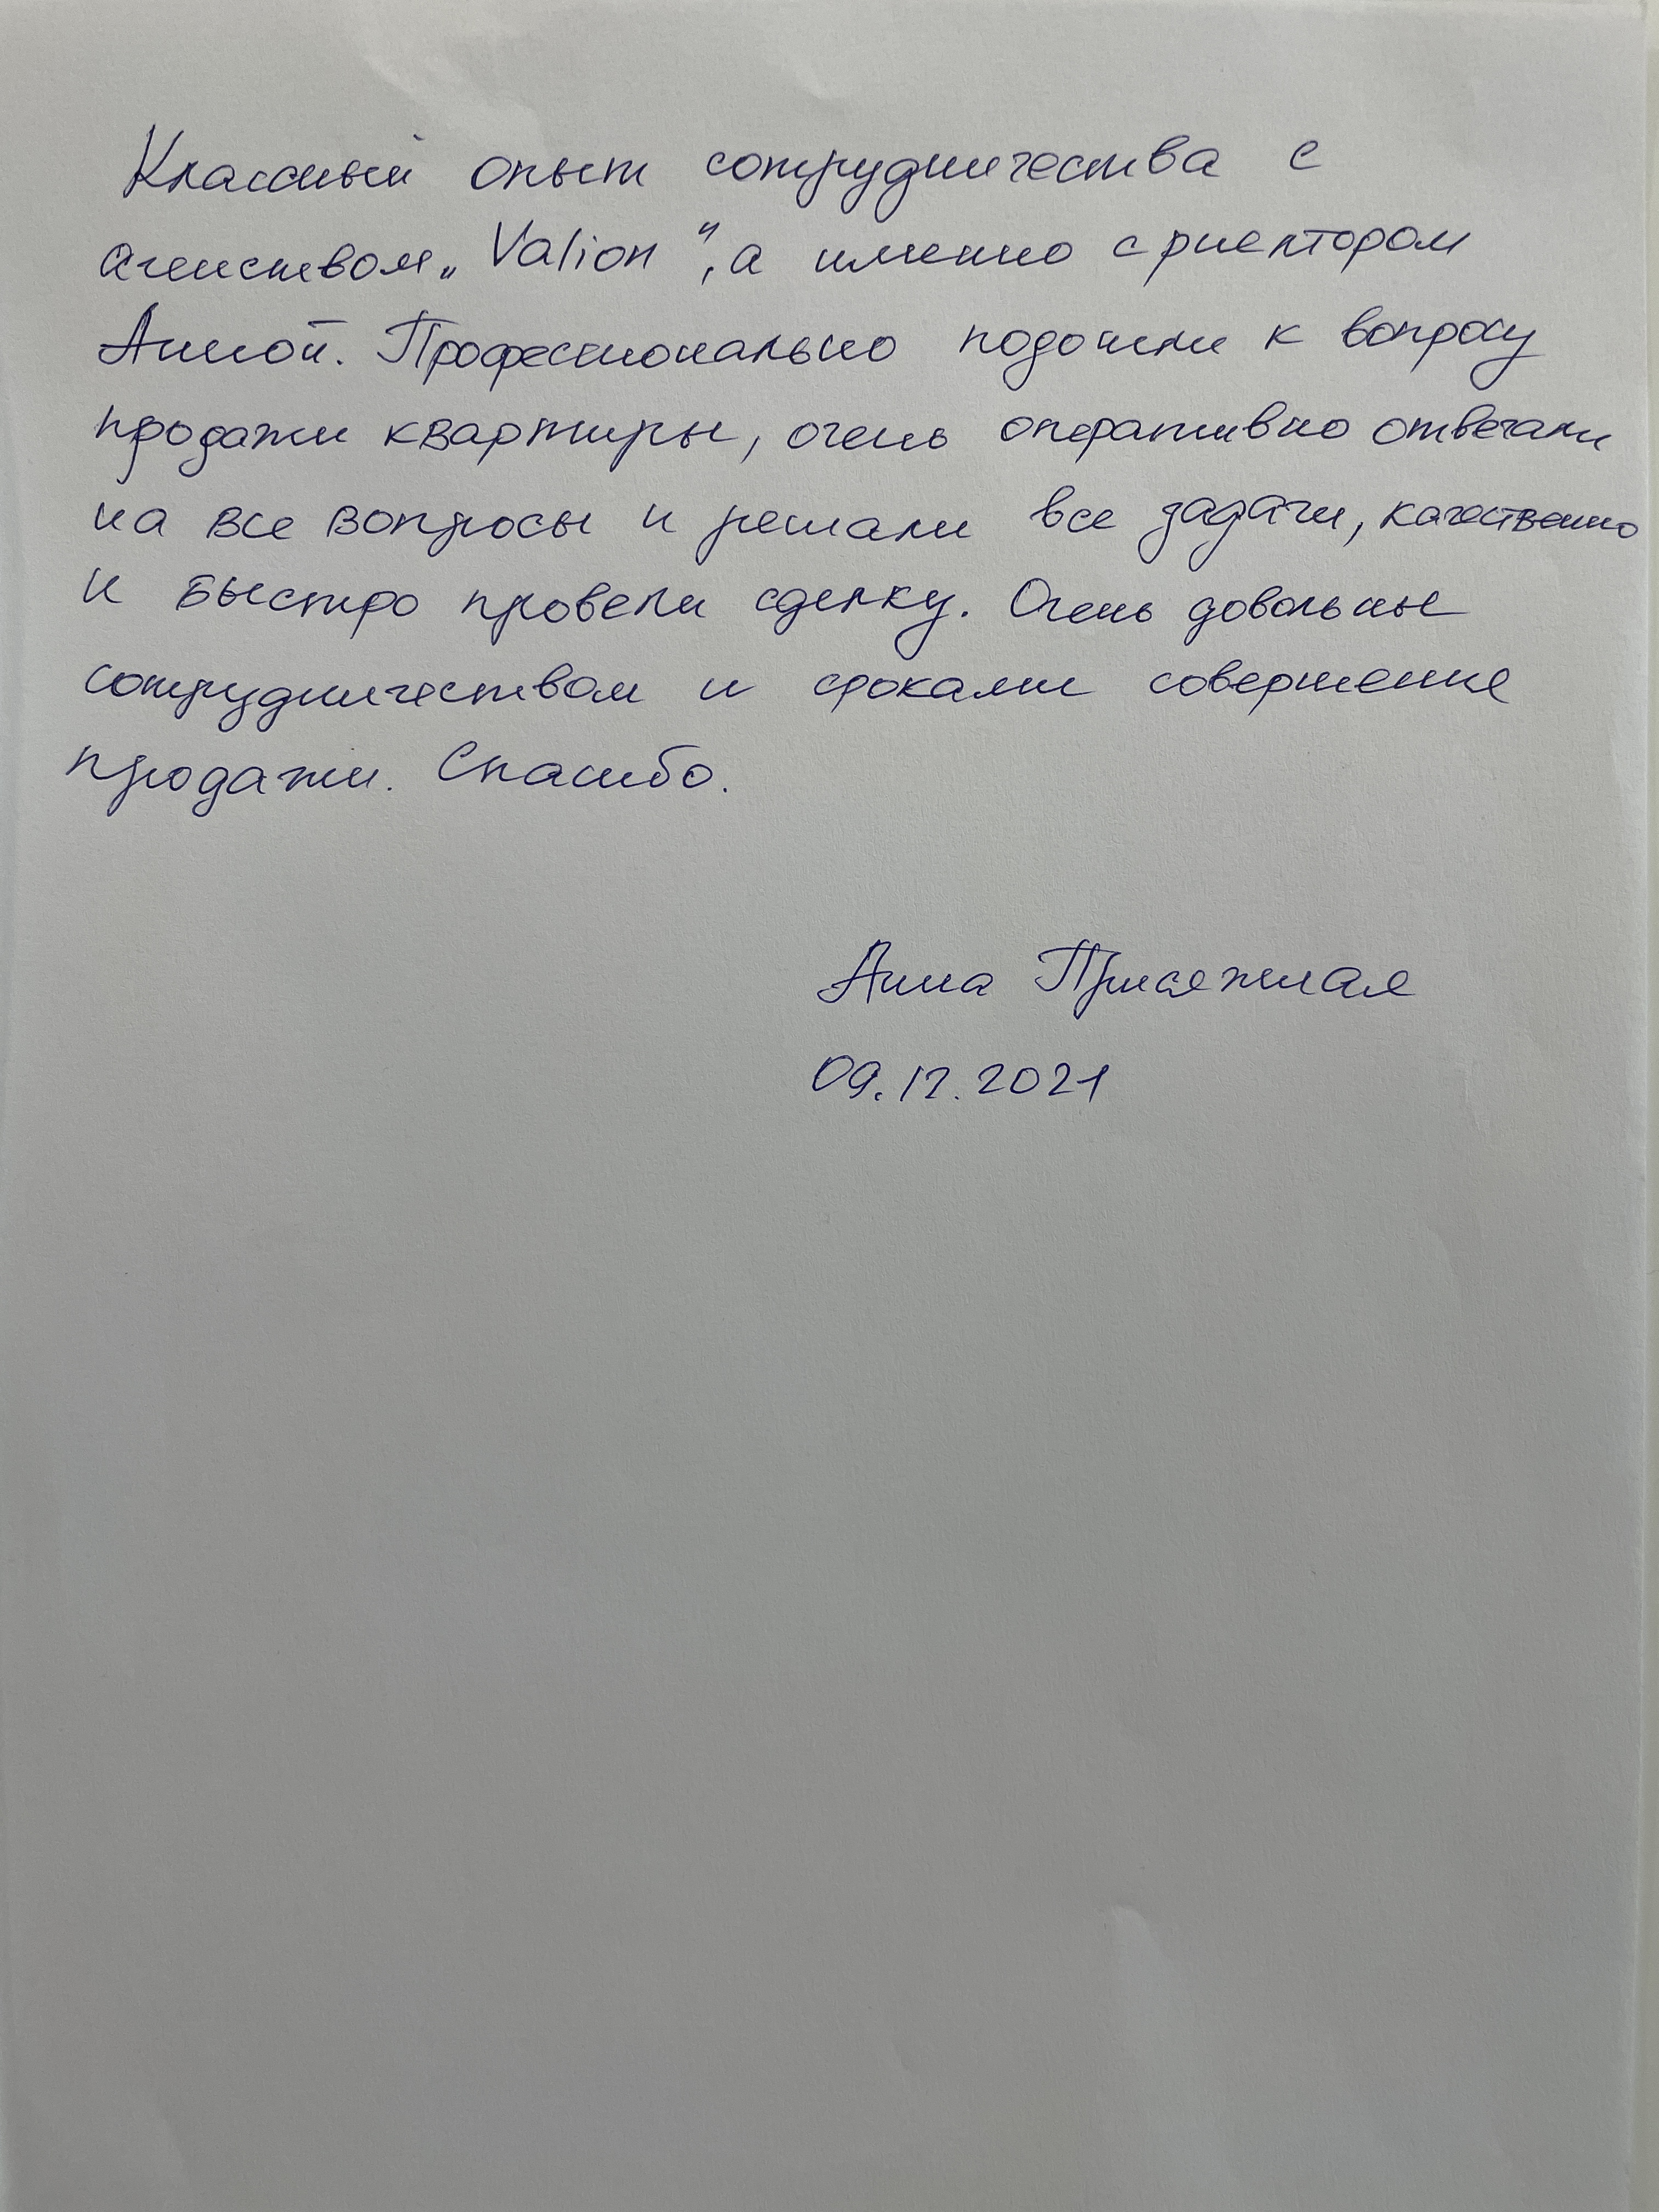 Классный опыт сотрудничества с
агенством „Valion“, а именно с риелтором
Анной. Профессионально подошли к вопросу
продажи квартиры, очень оперативно отвечали
на все вопросы и решали все задачи, качественно
и быстро провели сделку. Очень довольны
сотрудничеством и сроками совершение
продажи. Спасибо.
Анна Присяжная
09.12.2021